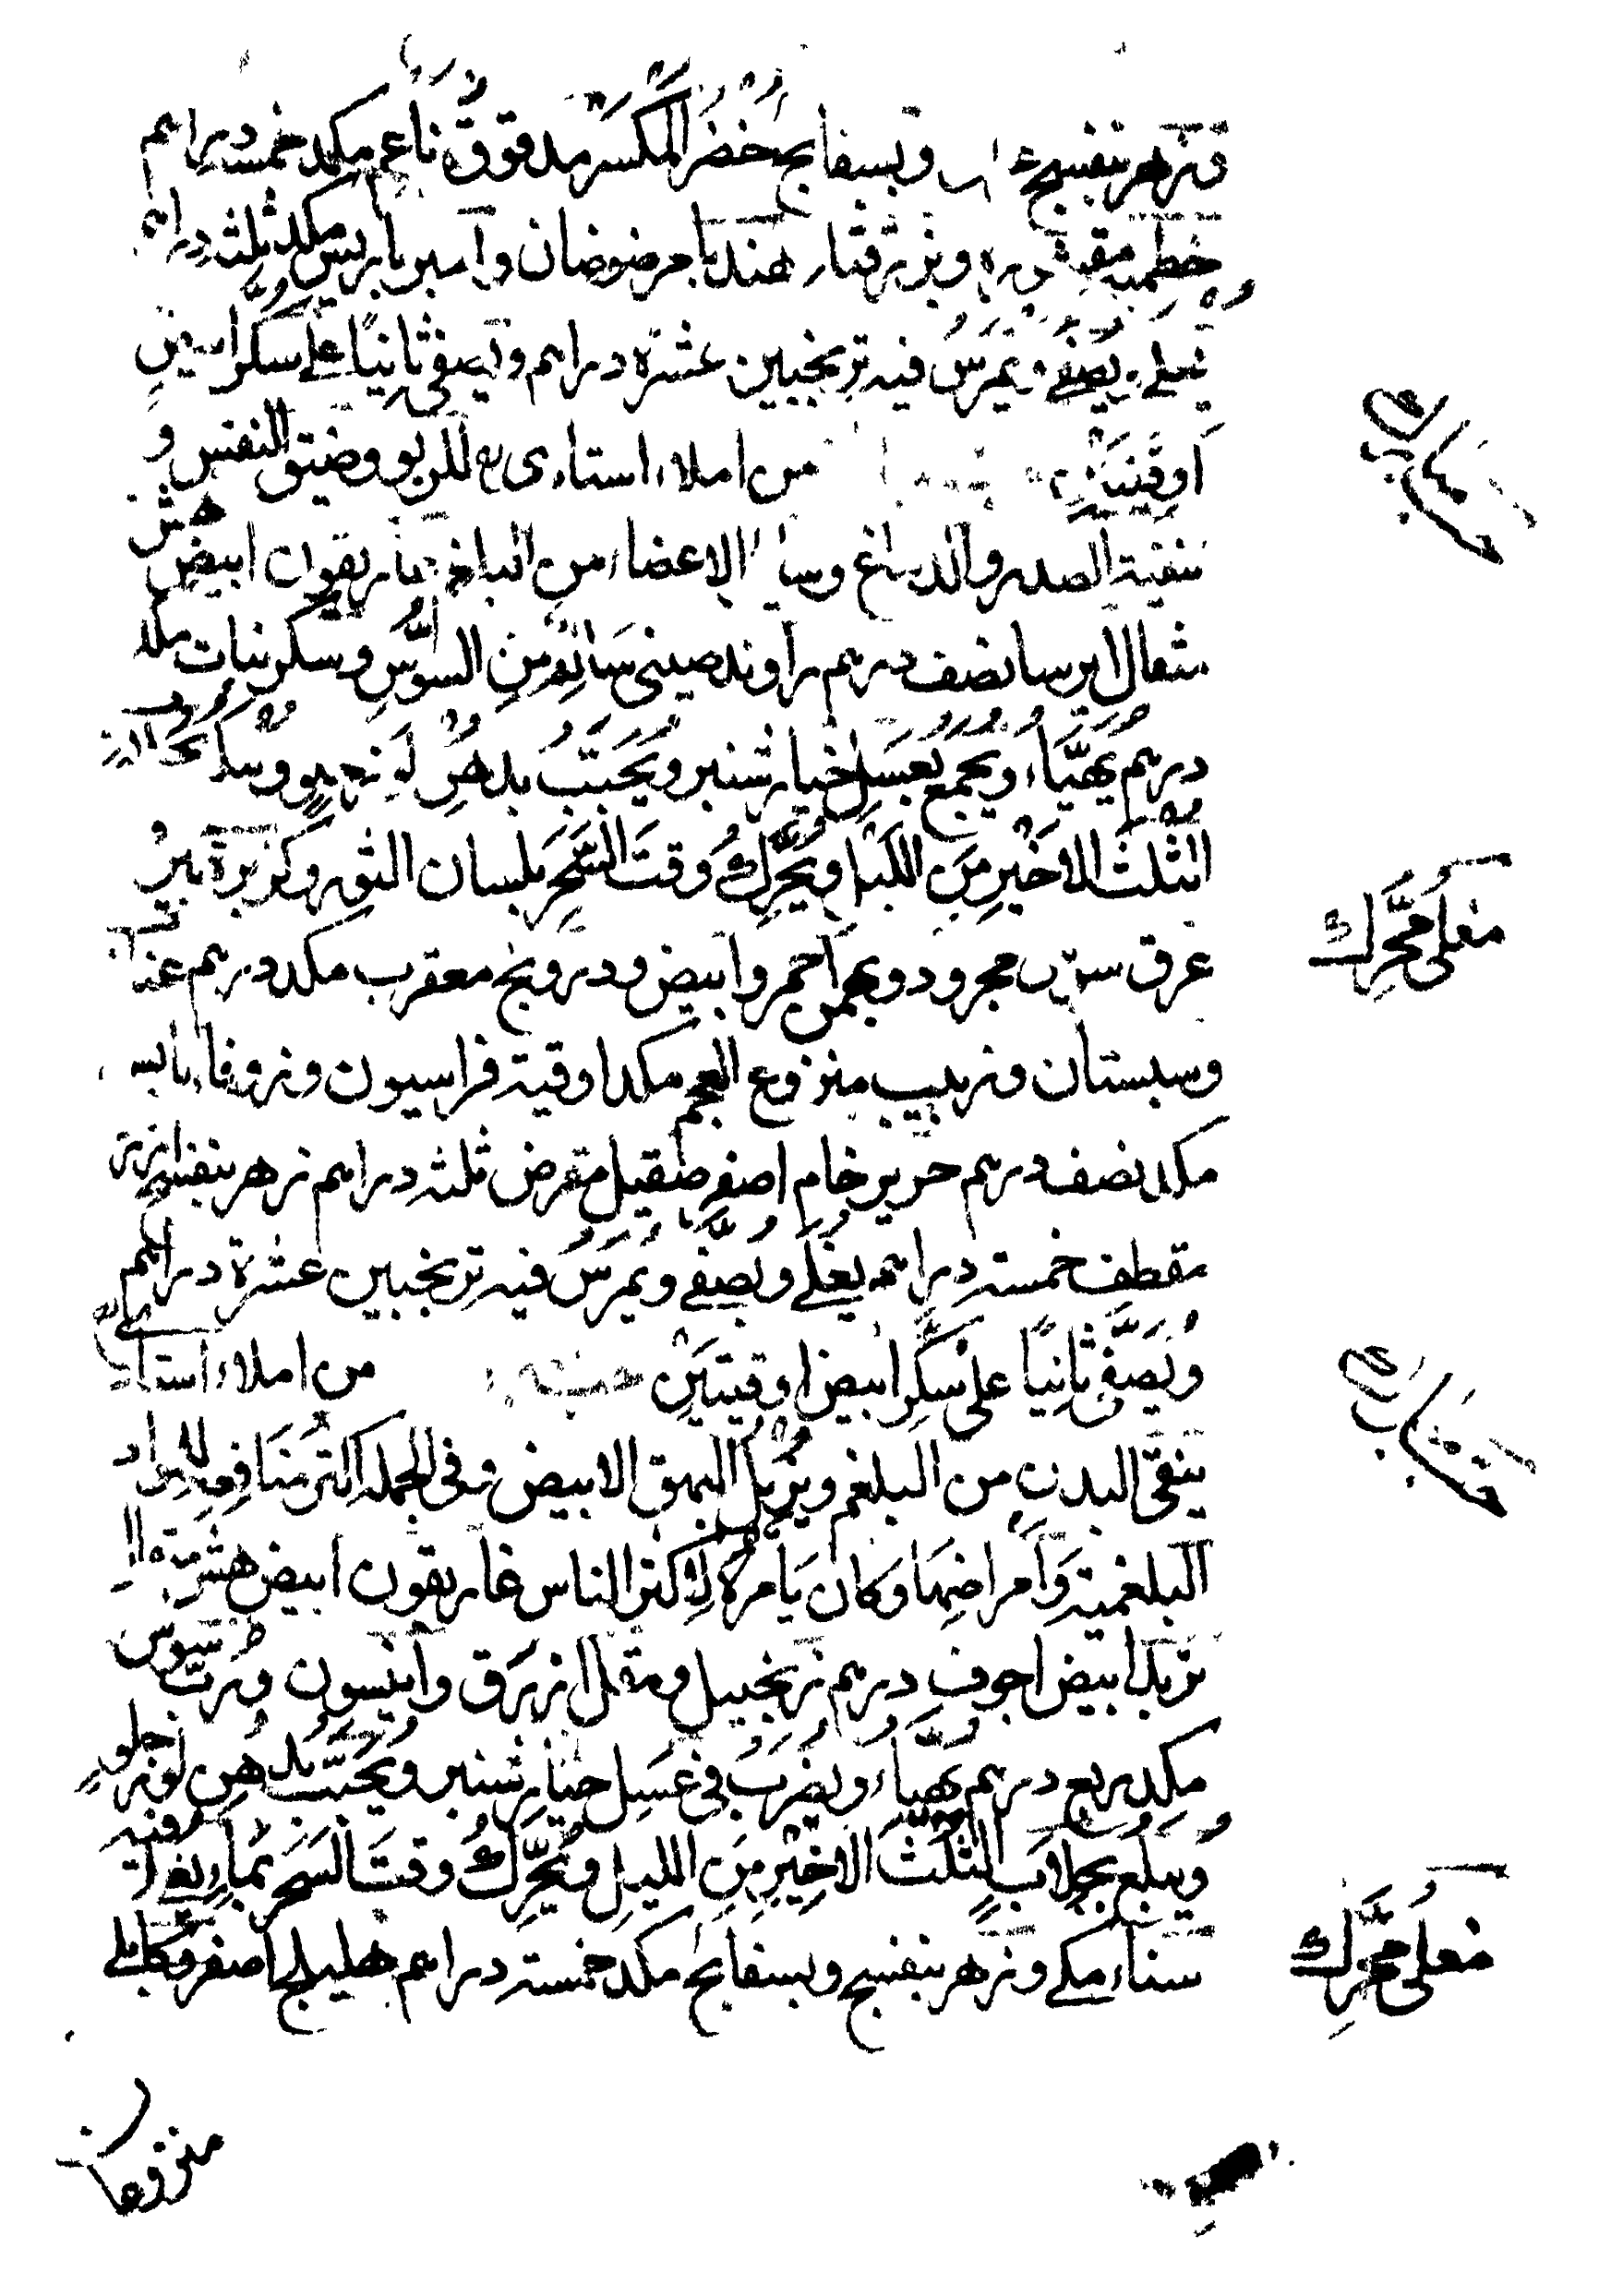 وزهر بنفسج وبسفايج اخضر المكسر مدقوق ناعم مكد خمسة دراهم
خطمية مقشوره وبزر قثاء هنديا مرضوضان وامبرباريس مكد ثلثه دراهم
يغلى ويصفى ويمرس فيه ترنجبين عشرة دراهم ويصفى ثانيا على سكر ابيض
اوقيتين من املاء استادى للربو وضيق النفس و
تنقية الصدر والدماغ وساير الاعضاء من البلغم غاريقون ابيض هش
مثقال ايرسا نصف درهم راوند صينى سالم من السوس وسكر نبات مكد
درهم يهيأ ويجمع بعسل خيار شنبر ويحبب بدهن لوز حلو وببلع
الثلث الاخير من الليل ويحرك وقت السحر بلسان الثور وكزبرة بير
عرق سوس مجرود وبهمن احمر وابيض ودرونج معقرب مكد درهم عناب
وسبستان وزبيب منزوع العجم مكد اوقية فراسيون وزوفاء يابس
مكد نصف درهم حرير خام اصفر صقيل مقرض ثلثه دراهم زهر بنفسج
مقطف خمسة دراهم يغلى ويصفى ويمرس فيه ترنجبين عشرة دراهم
ويصفى ثانيا على سكر ابيض اوقيتين من املاء استادى
ينقى البدن من البلغم ويزيل البهق الابيض وفى الجمله اكثر منافعه للمواد
البلغمية وامراضها وكان يامر به لاكثر الناس غاريقون ابيض هش
تربد ابيض اجوف درهم زنجبيل ومقل ازرق وانيسون ورب سوس
مكد ربع درهم يهيأ ويضرب فى عسل خيار شنبر ويحبب بدهن لوز حلو
ويبلع بجلاب الثلث الاخير من الليل ويحرك وقت السحر بماء يغلى فيه
سناء مكى وزهر بنفسج وبسفايج مكد خمسة دراهم هليلج اصفر وكابلى
مغلى محرك
مغلى محرك
منزوعان